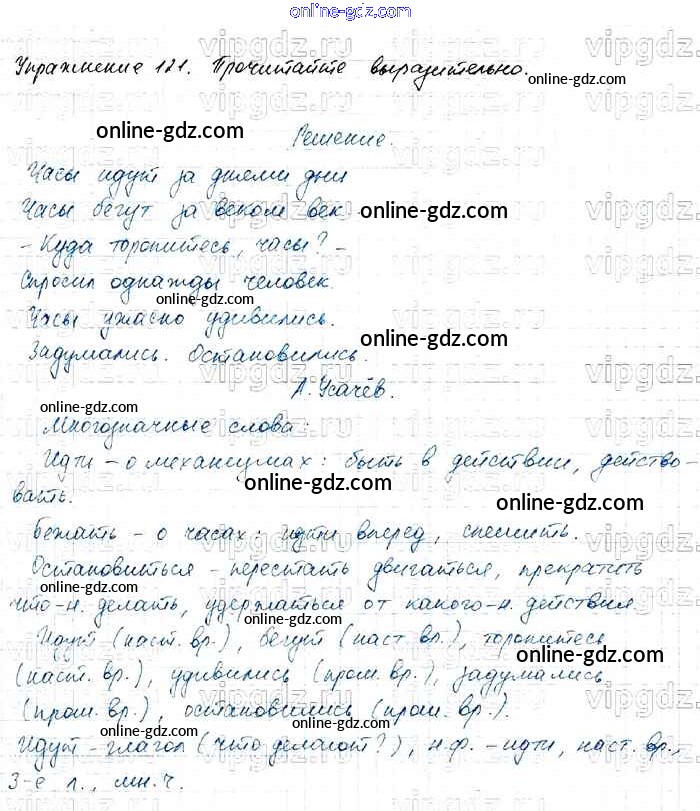 online-gdz.com
Упражнение 121. Прочитайте выразительно.
online-gdz.com
online-gdz.com
Решение.
Часы идут за днями дни
Часы бегут за веком век
online-gdz.com
- Куда торопитесь, часы? -
Спросил однажды человек.
online-gdz.com
Часы ужасно удивились.
online-gdz.com
Задумались. Остановились.
А. Усачёв.
online-gdz.com
Многозначные слова:
Идти - о механизмах: быть в действии, действо-
вать.
online-gdz.com
online-gdz.com
Бежать - о часах: идти вперед, спешить.
Остановиться - перестать двигаться, прекратить
что-н. делать, удержаться от какого-н. действия.
online-gdz.com
Идут (наст. вр.), бегут (наст. вр.), торопитесь
online-gdz.com
(наст. вр.), удивились (прош. вр.), задумались
(прош. вр.), остановились (прош. вр.).
online-gdz.com
Идут - глагол (что делают?), н.ф. - идти, наст. вр.,
3-е л., мн.ч.
online-gdz.com